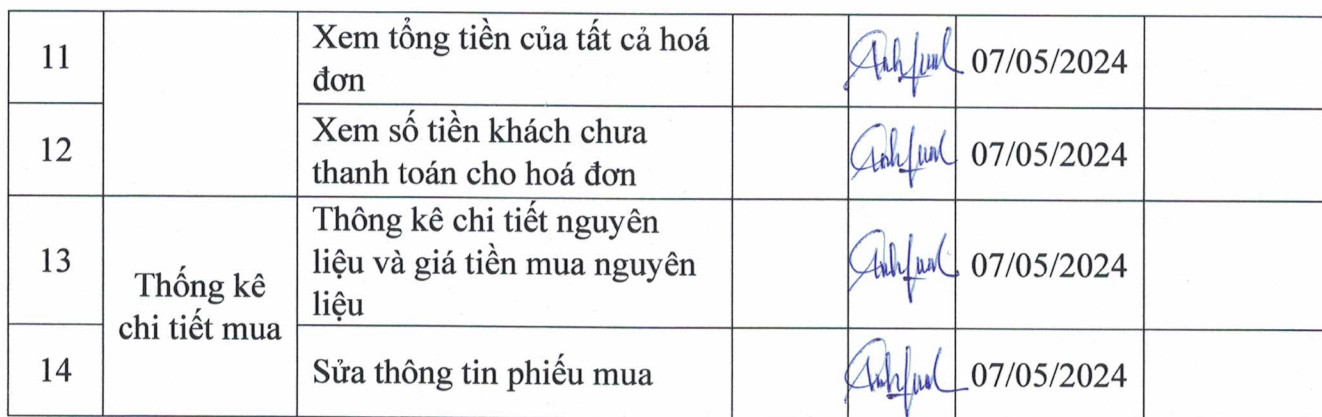 11
Xem tổng tiền của tất cả hoá
đơn
07/05/2024
12
Xem số tiền khách chưa
thanh toán cho hoá đơn
07/05/2024
Thống kê
chi tiết mua
13
Thông kê chi tiết nguyên
liệu và giá tiền mua nguyên
liệu
07/05/2024
14
Sửa thông tin phiếu mua
07/05/2024